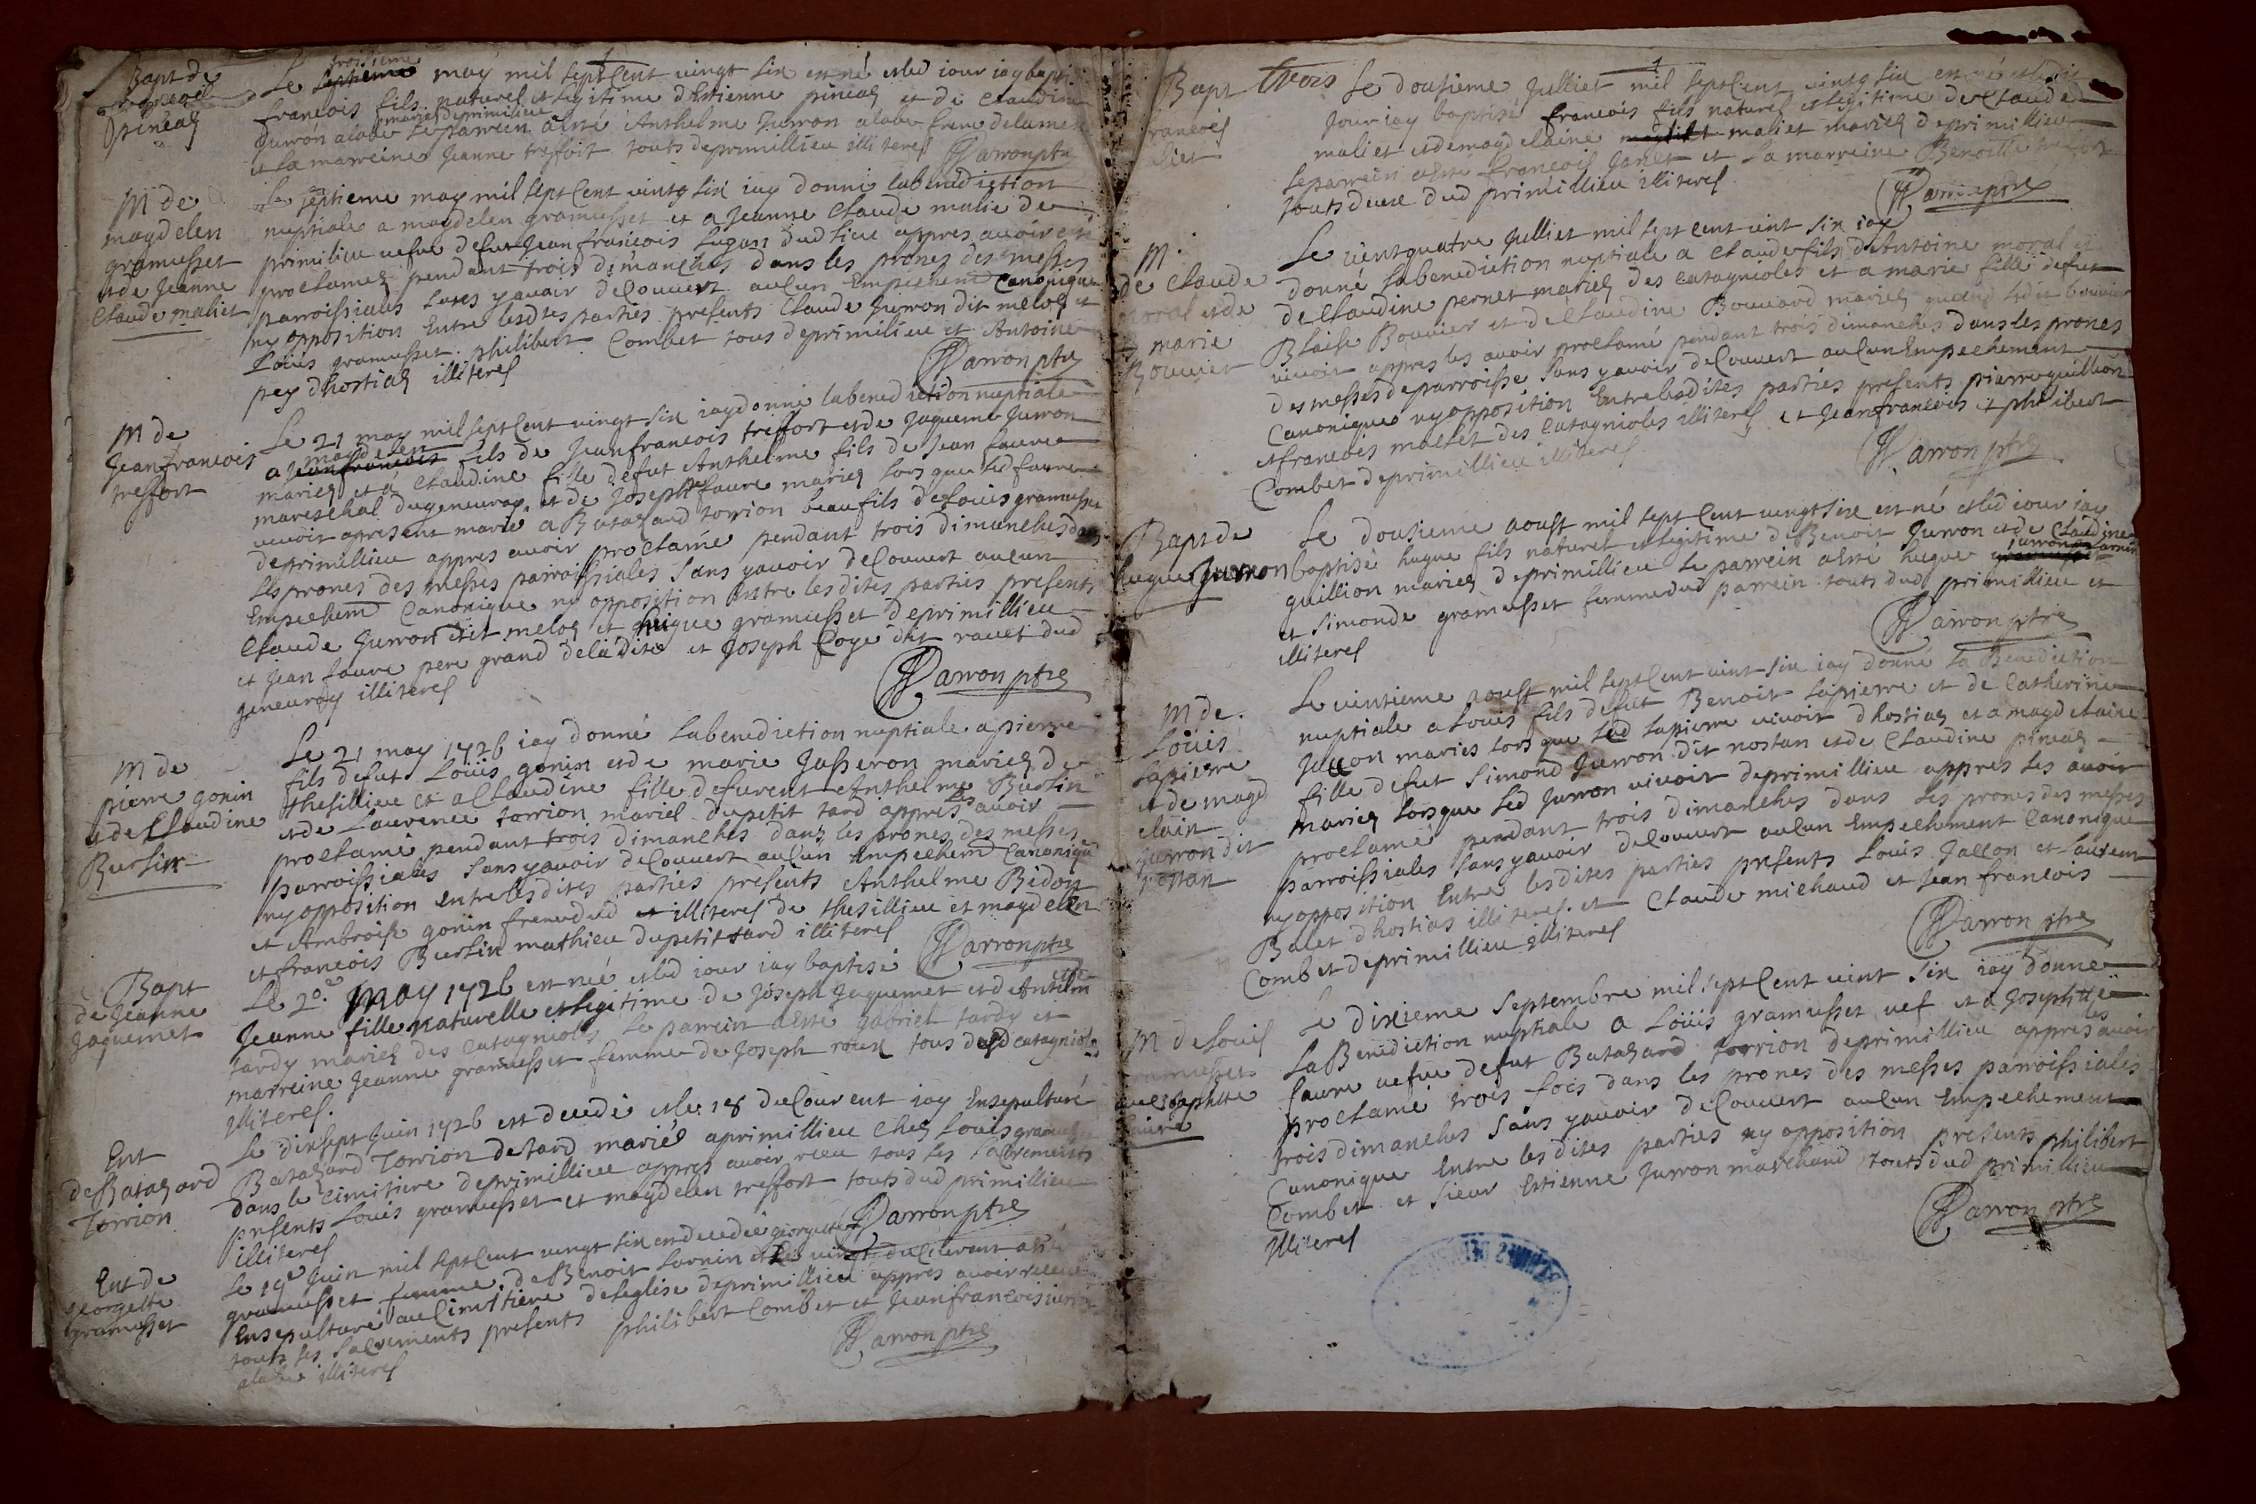 Bapt de
françois
pineaz
Le troisieme may mil sept Cent vingt six est né et led iour iay baptisé
françois fils naturel et legitime d'Estienne pineaz et de Claudine
Jurron alabe mariez deprimilieu Le parrein a esté Anthelme Jurron alabe frere de la mere
et la marreine Jeanne treffort touts deprimillieu illiterez Darron ptre
M de
magdelen
gramusset
et de Jeanne
Claude maliet
Le septieme may mil sept Cent vingt six iay donné la benediction
nuptiale a magdelen gramusset et a Jeanne Claude maliet de
primilieu vefue de fut Jean françois Lugan dud lieu appres auoir esté
proclamez pendant trois dimanches dans les prones des messes
parroissiaux sans y auoir decouuert aucun Empechemt Canonique
ny opposition Entre lesdtes parties presents Claude Jurron dit meloz et
Louis gramusset philibert Combet tous deprimilieu et Antoine
pey dhostiaz illiterez Darron ptre
M de
Jeanfrancois
treffort
Le 21 may mil sept Cent vingt six iay donné la benediction nuptiale
a magdelen fils de Jeanfrancois treffort et de Jaquemę Jurron
mariez et a Claudine fille de fut Anthelme fils de Jean faure
mareschal dugeneuray et de Josephte faure mariez lors que led faure
viuoit apresent marié a Batazard torrion beaufils de Louis gramusset
deprimillieu appres auoir proclamé pendant trois dimanches dans
les prones des messes parroissiales sans y auoir decouuert aucun
Empechemt Canonique ny opposition entre lesdites parties presents
Claude Jurron dit meloz et hugue gramusset deprimillieu
et Jean faure pere grand de ladite et Joseph Coye dit rauet dud
geneuray illiterez Darron ptre
M de
pierre gonin
et de Claudine
Burlin
Le 21 may 1726 iay donné la benediction nuptiale a pierre
fils de fut Louis gonin et de marie Jasseron mariez de
thesillieu et a Claudine fille de furent Anthelme Burlin
et de Laurence torrion mariez dupetit tard appres les auoir
proclamé pendant trois dimanches dans les prones des messes
parroissiales sans y auoir decouuert aucun Empechemt Canonique
ny opposition entre lesdites parties presents Anthelme Bidon
et Ambroise gonin frere dud et illiterez de thesillieu et magdelen
et francois Burlin mathieu dupetit tard illiterez Darron ptre
Bapt
de Jeanne
Jaquemet
Le 20e may 1726 est née et led iour iay baptisé
Jeanne fille naturelle et legitime de Joseph Jaquemet et de Antelmette
tardy mariez des Catagnioles le parrein a esté gabriel tardy et
marreine Jeanne gramusset femme de Joseph roux tous dud catagnioles
illiterez.
Ent
de Batazard
Torrion
Le dixsept Juin 1726 est decedé et le 18 du Courent iay Ensepulturé
Batazard Torrion de tard mariés a primillieu Chez Louis gramusset
dans le cimitiere deprimillieu appres auoir receu tous les sacrements
presents Louis gramusset et magdelen treffort touts dud primillieu
illiterez Darron ptre
Ent de
georgette
gramusset
Le 19e Juin mil sept Cent vingt six est decedée georgette
gramusset femme de Benoit Lornin et le vingt du Courant a esté
Ensepulturé au Cimitiere de leglise deprimillieu appres auoir receu
touts les sacrements presents philibert Combet et Jeanfrancois Jurron
alabe illiterez Darron ptre
Bapt
francois
maliet
trois Le dousieme Julliet mil sept Cent vingt six est né et ledit
Jour iay baptisé francois fils naturel et legitime de Claude
maliet et de magdelaine maliet mariez deprimillieu
le parrein a esté francois Janet et la marreine Benoitte treffort
touts deux dud primillieu illiterez Darron ptre
M.
de Claude
moral et de
marie
Bouuier
Le vint quatre Julliet mil sept cent vint six iay
donné la benediction nuptiale a Claude fils d'Antoine moral et
de Claudine pernet mariez des catagnioles et a marie fille de fut
Blaise Bouuier et de Claudine Bouuard mariez quand ledit bouuier
viuoit appres les auoir proclamé pendant trois dimanches dans les prones
des messes de parroisse sans y auoir decouuert aucun Empechement
Canonique ny opposition Entre lesdites parties presents piarre quillion
et francois mallet des Catagnioles illiterez et Jeanfrancois et philibert
Combet deprimillieu illiterez Darron ptre
Bapt de
hugue Jurron
Le dousieme aoust mil sept Cent vingt six est né et led iour iay
baptisé hugue fils naturel et legitime de Benoit Jurron et de Claudine
quillion mariez deprimillieu Le parrein a esté hugue Jurron
et Simonde gramusset femme dud parrein touts dud primillieu et
illiterez Darron ptre
M de.
Louis
Lapierre
et de magd
elain
Jurron dit
nostan
Le vintieme aoust mil sept Cent vint six iay donné la Benediction
nuptiale a Louis fils de fut Benoit Lapierre et de Catherine
Jallon mariés lors que led Lapierre viuoit dhostiaz et a magdelaine
fille de fut Simond Jurron dit nostan et de Claudine pineaz
mariez lorsque led Jurron viuoit deprimillieu appres les auoir
proclamé pendant trois dimanches dans les prones des messes
parroissiales sans y auoir decouuert aucun Empechement Canonique
ny opposition Entre lesdites parties presents Louis Jallon et Laurent
Balet dhostias illiterez et Claude michaud et Jean francois
Combet deprimillieu illiterez Darron ptre
M de Louis
gramusset
auec Josephtte
faure
Le dixieme septembre mil sept Cent vint six iay donné
La Benediction nuptiale a Louis gramusset vef et a Josephtte
faure vefue de fut Batazard torrion deprimillieu appres les auoir
proclamé trois fois dans les prones des messes parroissiales
trois dimanches sans y auoir decouuert aucun Empechement
Canonique Entre lesdites parties ny opposition presents philibert
Combet et sieur Estienne Jurron marchand touts dud primillieu
illiterez Darron ptre